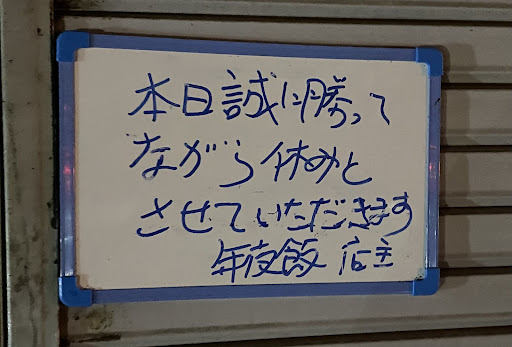 本日誠に勝って
ながら休みと
させていただきます
年夜飯 店主